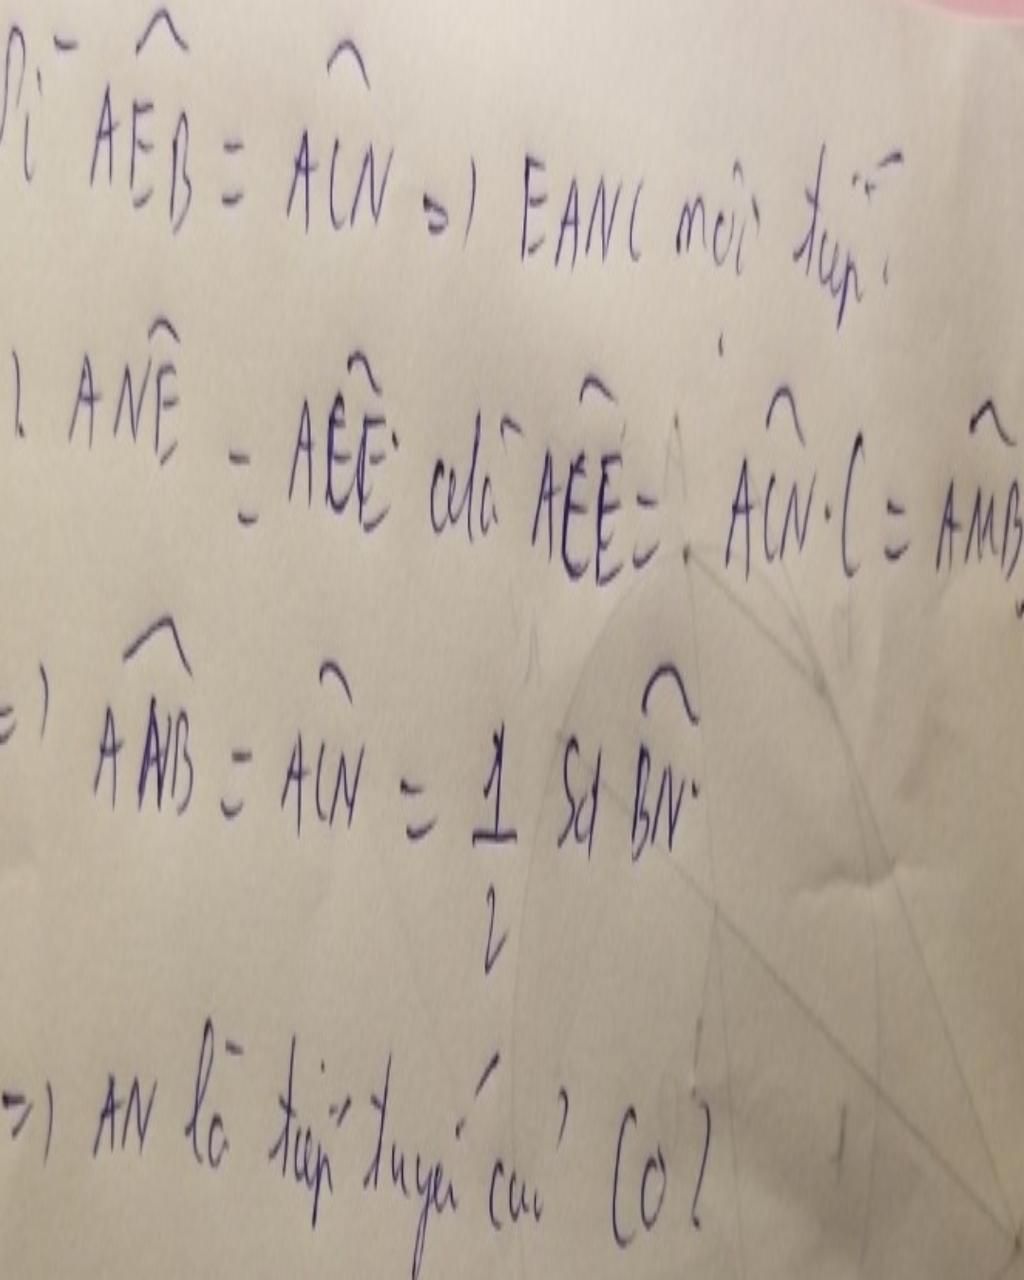 Vì AEB = ACN => EANC nội tiếp.
ANE = ACE. mà ACE = ACN. ( = AMB
=> ANB = ACN = 1/2 Sđ BN.
=> AN là tiếp tuyến của (O)